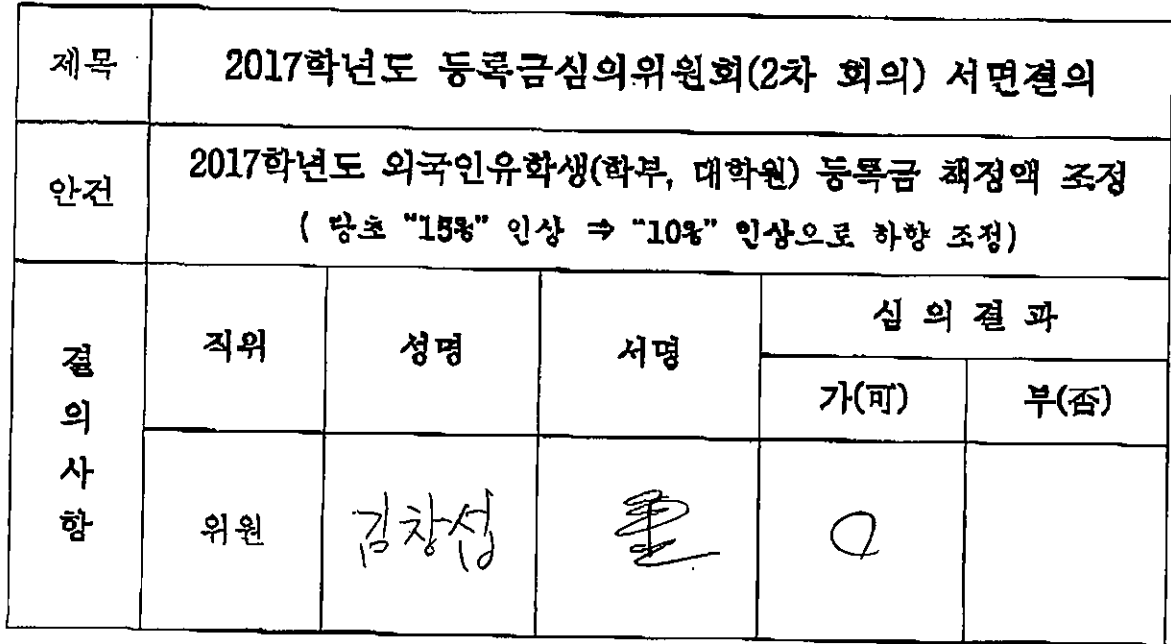 제목
2017학년도 등록금심의위원회(2차 회의) 서면결의
안건
2017학년도 외국인유학생(학부, 대학원) 등록금 책정액 조정
( 당초 "15%" 인상 ⇒ "10%" 인상으로 하향 조정)
결의사항
직위
성명
서명
심의결과
가(可)
부(否)
위원
김창섭
○